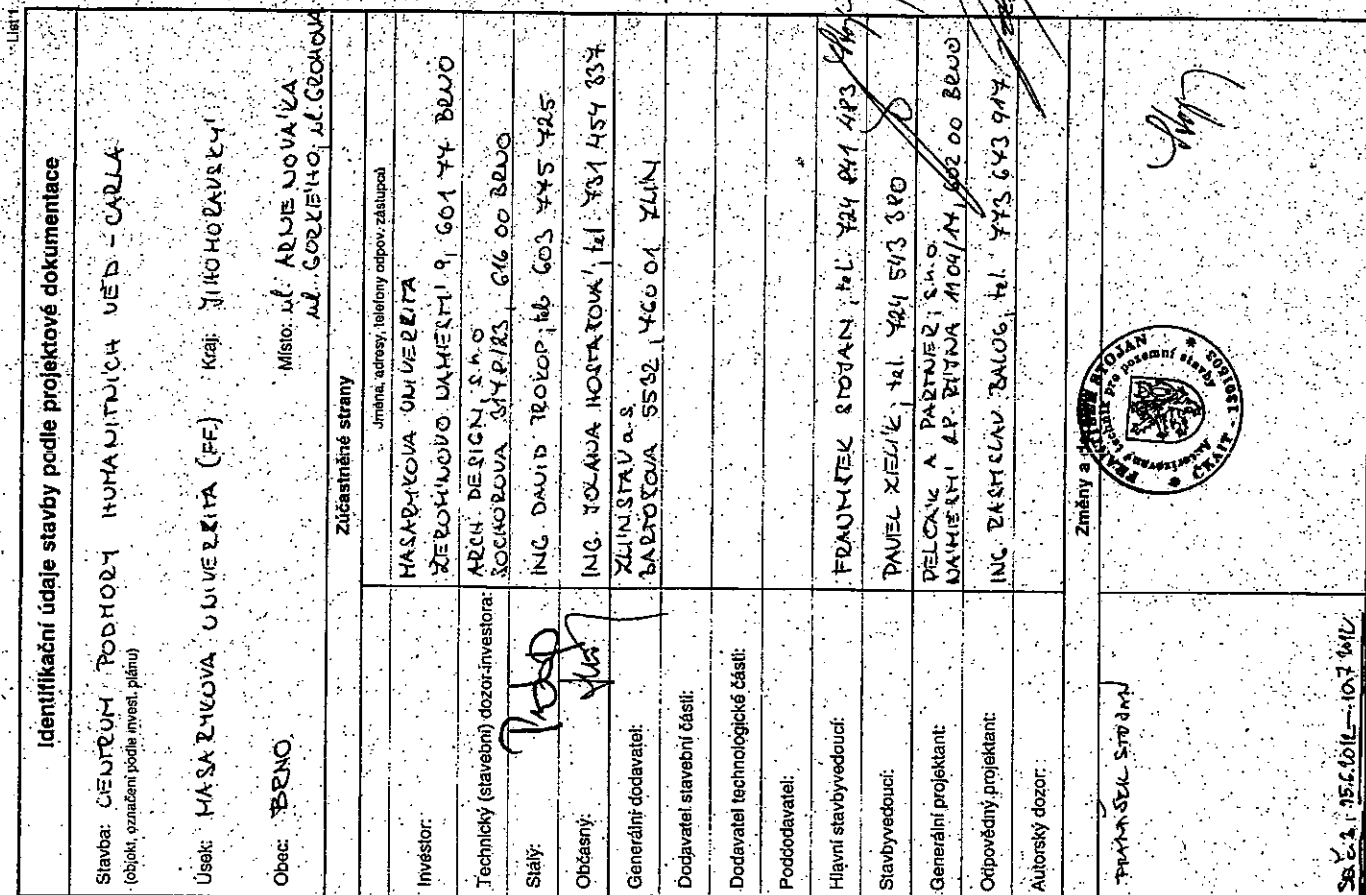 List 1
Identifikační údaje stavby podle projektové dokumentace
Stavba: CENTRUM PODPORY HUMANITNÍCH VĚD - CARLA
(objekt, označení podle invest. plánu)
Úsek: MASARYKOVA UNIVERZITA (FF) Kraj: JIHOMORAVSKÝ
Obec: BRNO Místo: ul. ARNE NOVÁKA
ul. GORKÉHO, ul. GROHOVA
Zúčastněné strany
Jména, adresy, telefony odpov. zástupců
Investor: MASARYKOVA UNIVERZITA
ŽEROTÍNOVO NÁMĚSTÍ 9, 601 77 BRNO
Technický (stavební) dozor investora: ARCH. DESIGN, s.r.o
SOCHOROVA 616 00 BRNO
Stálý: ING. DAVID PROKOP, tel. 603 775 725
Občasný: ING. JOLANA tel. 731 454 837
Generální dodavatel: ZLÍNSTAV a.s.
BARTOŠOVA 5532, 760 01 ZLÍN
Dodavatel stavební části:
Dodavatel technologické části:
Poddodavatel:
Hlavní stavbyvedoucí: FRANTIŠEK STOJAN, tel. 724 841 483
Stavbyvedoucí: PAVEL tel. 724 543 380
Generální projektant: PELČÁK A PARTNER, s.r.o.
NÁMĚSTÍ 602 00 BRNO
Odpovědný projektant: ING. BALOG, tel. 773 643 917
Autorský dozor:
Změny a
FRANTIŠEK STOJAN
FRANTIŠEK STOJAN
Autorizovaný technik pro pozemní stavby
ČKAIT - 1301605
SD Č. 2, 15.6.2012 - 10.7.2012